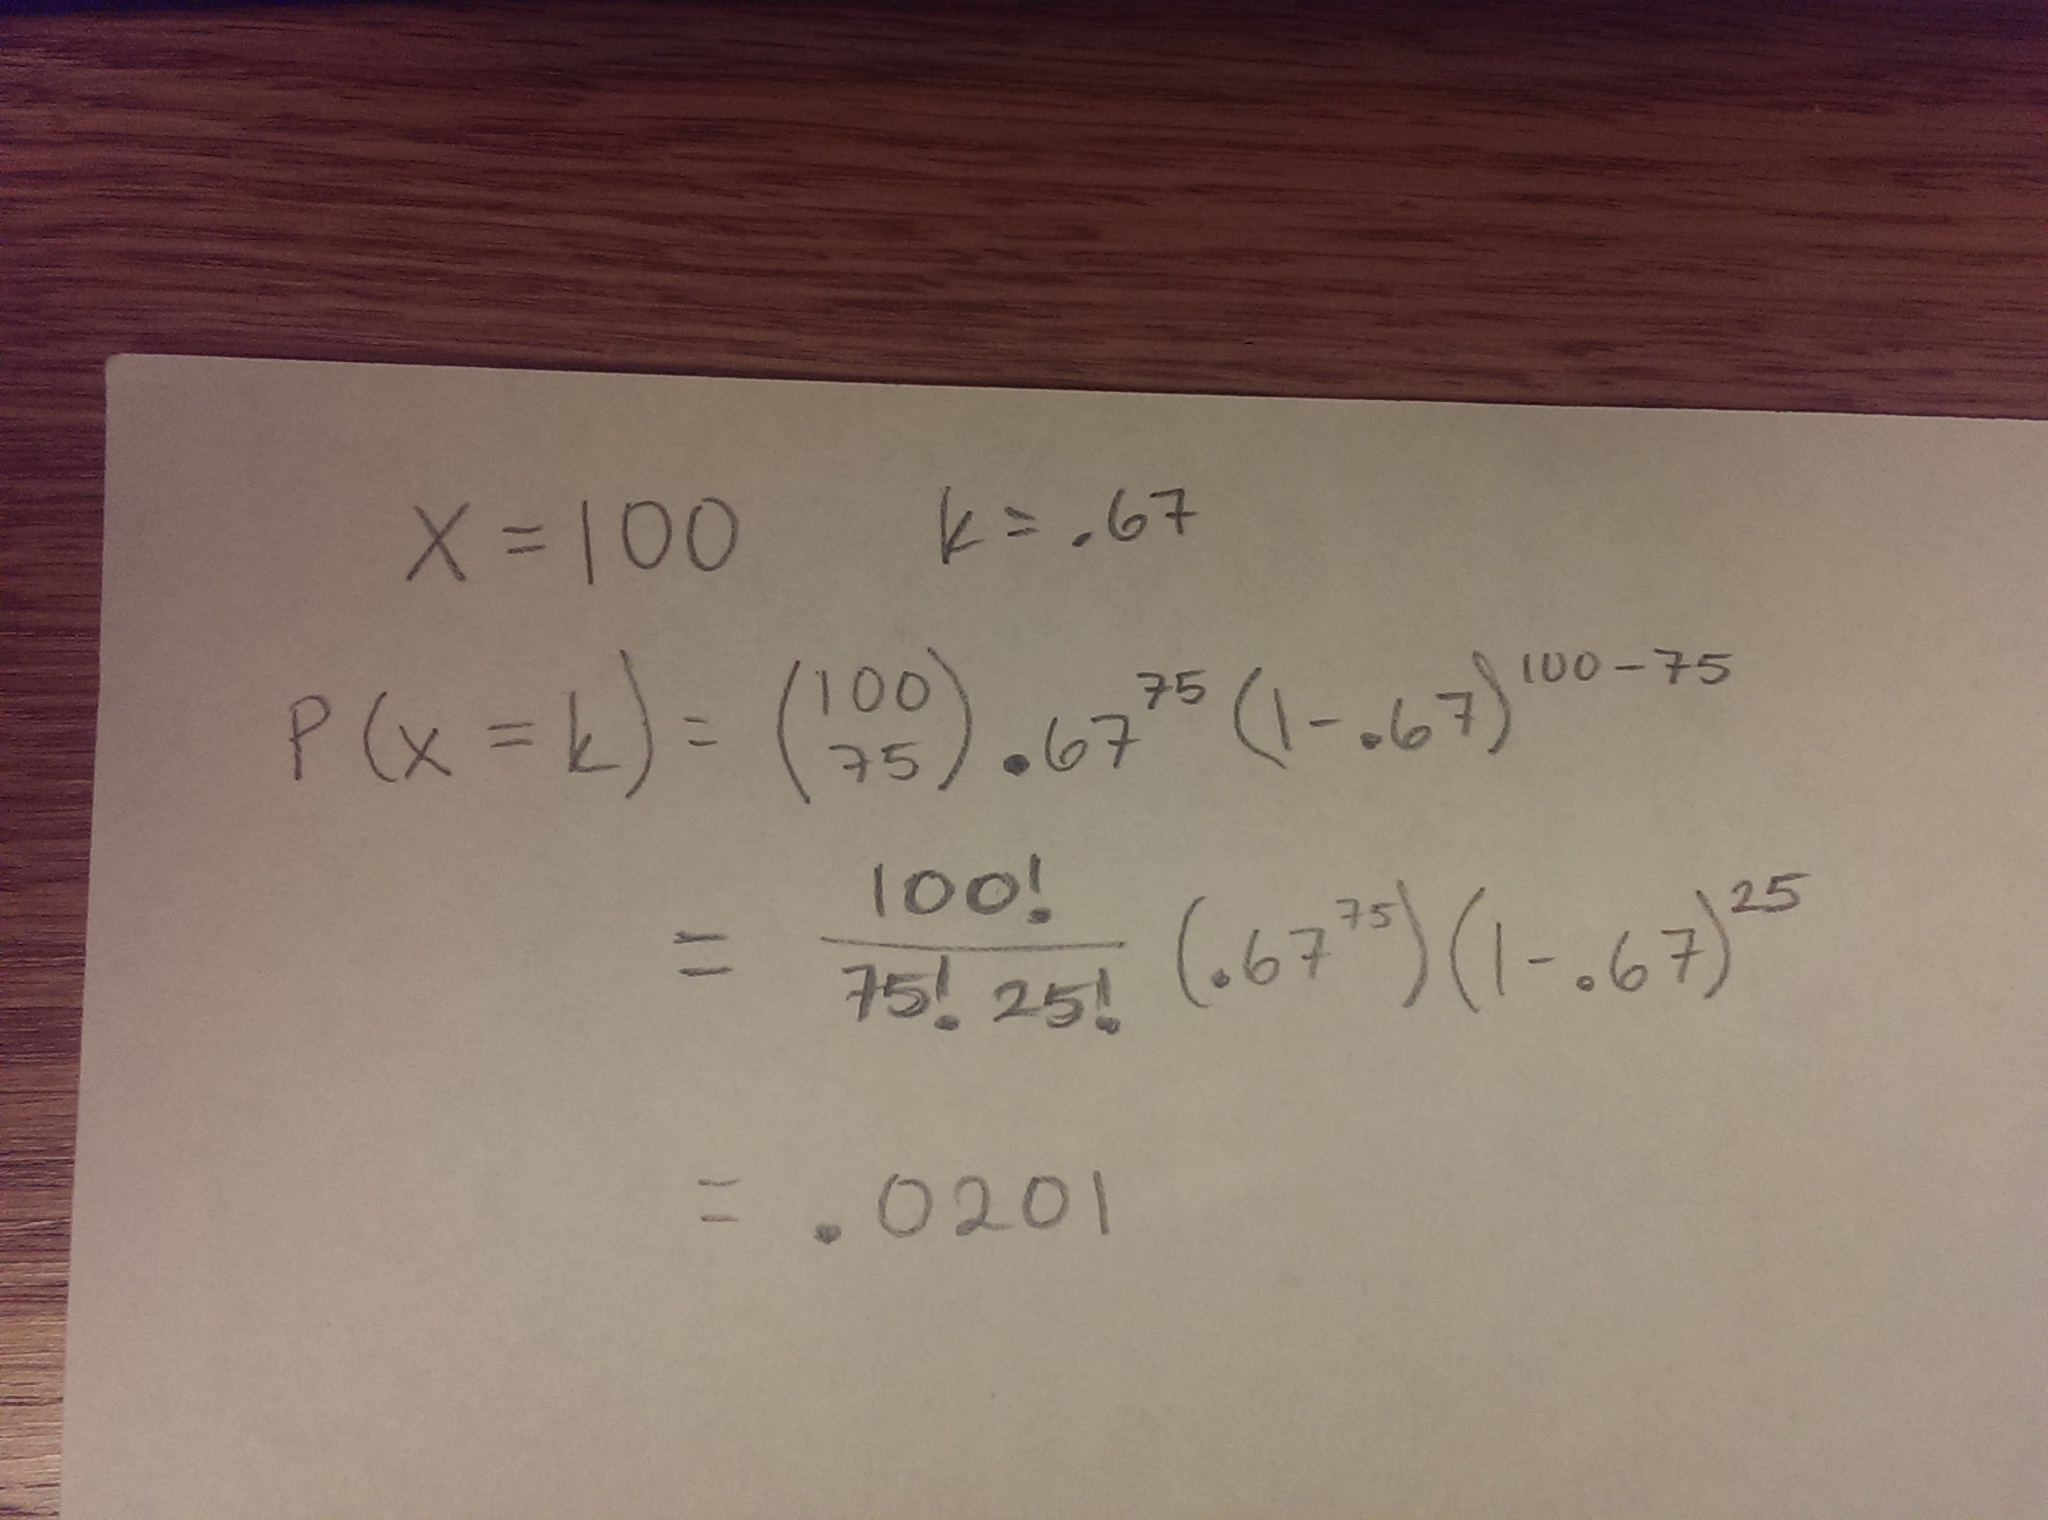 X = 100 k = .67
P(x = k) = (100 75) .67^75 (1 - .67)^100-75
= 100! / 75! 25! (.67^75)(1 - .67)^25
= .0201